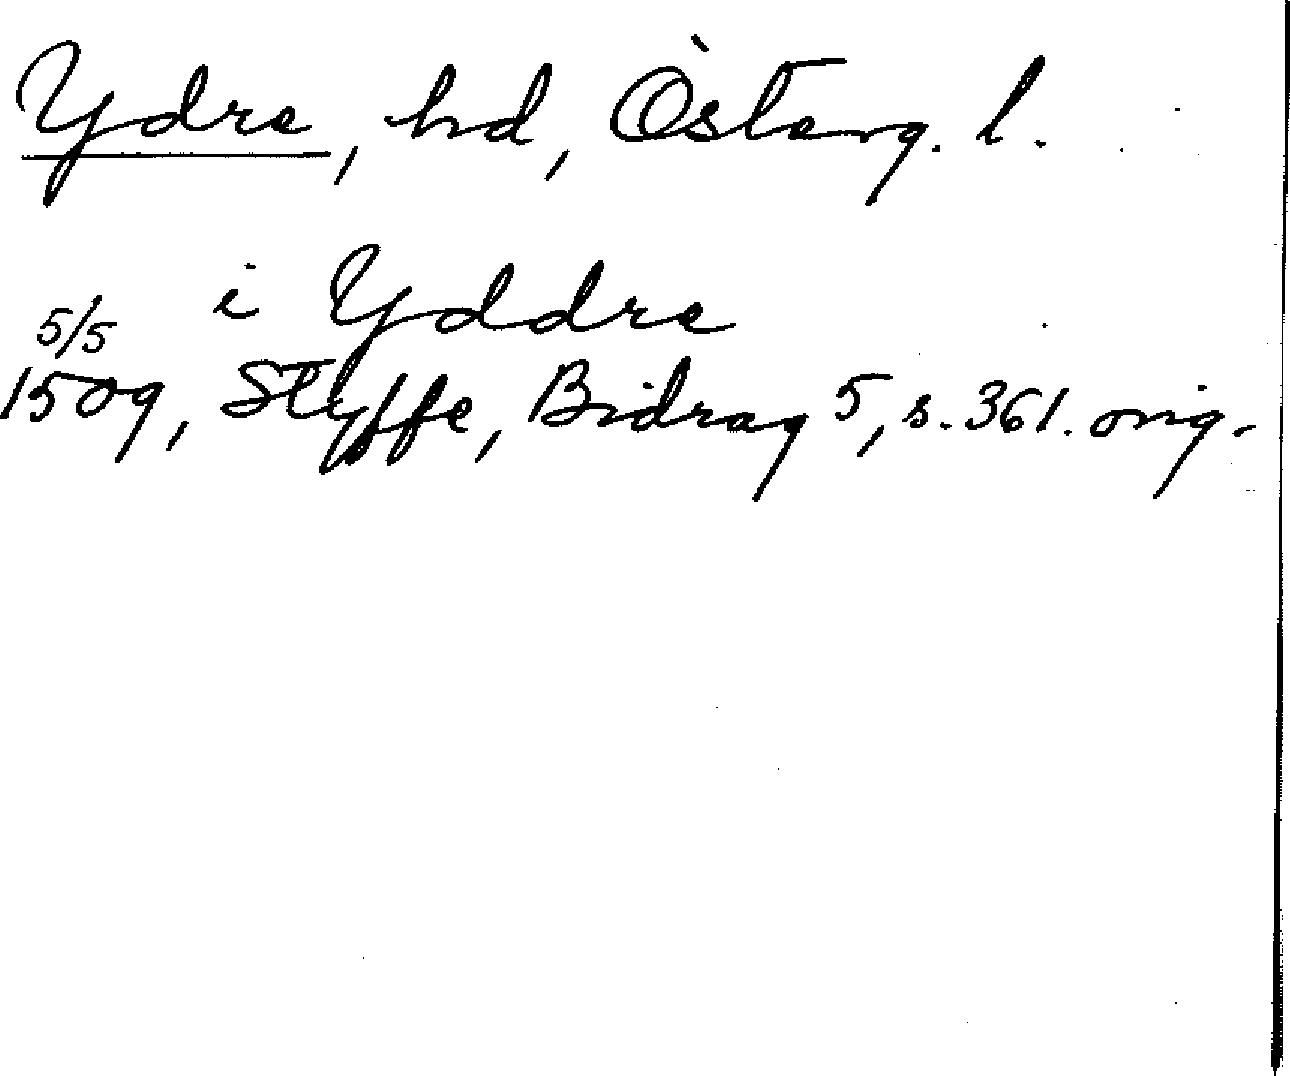 Ydre, hd, Österg. l.
i Yddre
5/5
1509, Styffe, Bidrag 5, s. 361. orig.